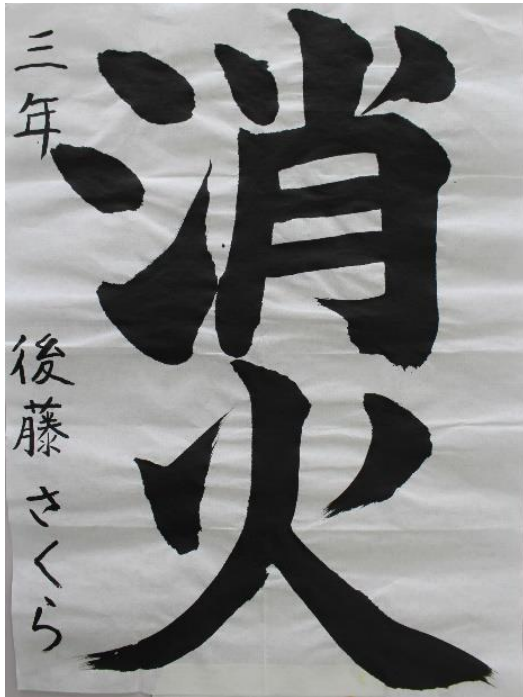 消火
三年 後藤さくら